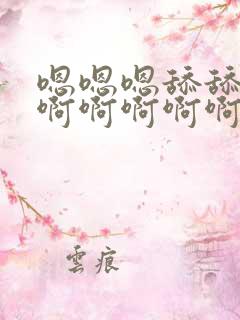 嗯嗯嗯舔舔
啊啊啊啊啊
雲痕